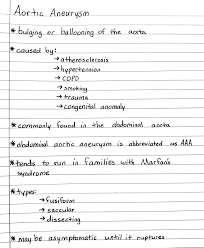 Aortic Aneurysm
* bulging or ballooning of the aorta
* caused by:
→ atherosclerosis
→ hypertension
→ COPD
→ smoking
→ trauma
→ congenital anomaly
* commonly found in the abdominal aorta
* abdominal aortic aneurysm is abbreviated as AAA
* tends to run in families with Marfan's
syndrome
* types:
→ fusiform
→ saccular
→ dissecting
* may be asymptomatic until it ruptures